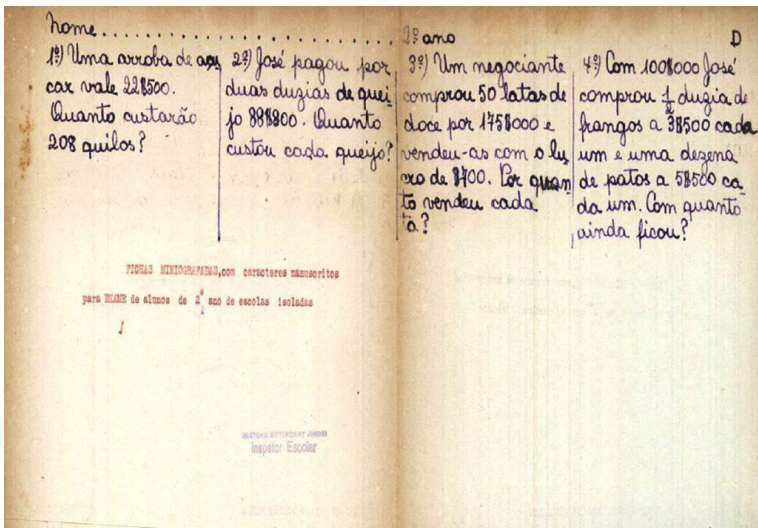 Nome....................................
2º ano
D
1º) Uma arroba de açu
car vale 22$500.
Quanto custarão
208 quilos?
2º) José pagou por
duas duzias de quei
jo 88$800. Quanto
custou cada queijo?
3º) Um negociante
comprou 50 latas de
doce por 175$000 e
vendeu-as com o lu
cro de $700. Por quan
to vendeu cada
ta?
4º) Com 100$000 José
comprou 1/2 duzia de
frangos a 3$500 cada
um e uma dezena
de patos a 5$500 ca
da um. Com quanto
ainda ficou?
FICHAS MIMIOGRAFADAS,com caracteres manuscritos
para EXAME de alunos de 2º ano de escolas isoladas
Inspetor Escolar